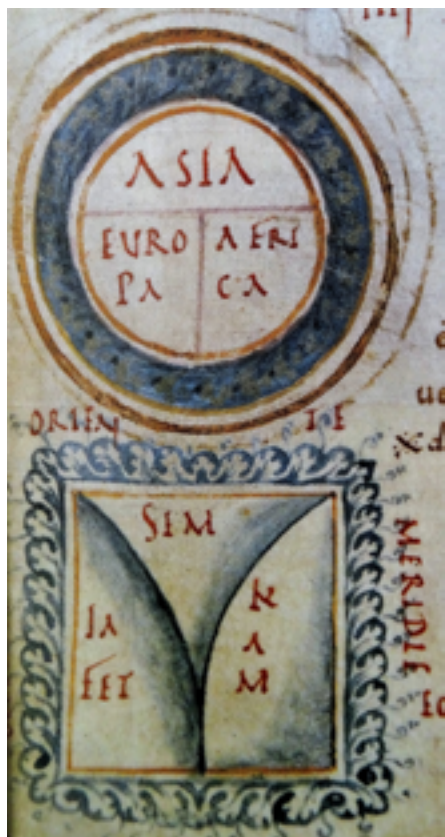 ASIA
EURO AFRI
PA CA
ORIEN TE
SEM
IA
FET
K
A
M
MERIDIE